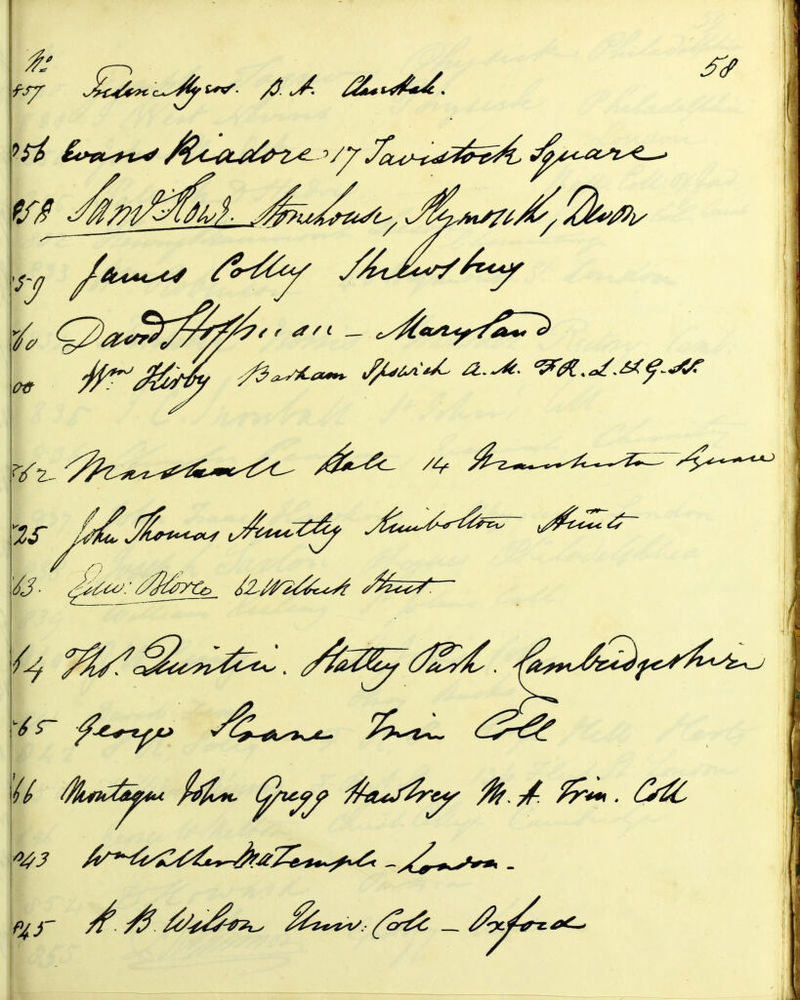 58
No
857 Frederic Myers. B. A. Clare Hall.
856 Evans Riadore 17 Tavistock Square
858 Saml. Rowe. Stonehouse, Plymouth, Devon
859 James Colley Shrewsbury
60 David Hoffman - Maryland
Wm Kirby Barham Ipswich A. M. F R. L. & G. SS.
862 Marshall Hall 14 Manchester Square
825 John Thomas Huntley Kimbolton Hunts
63. Edw: Blore 62 Welbeck Street.
64 Thos. Quintin. Hatley Park. Cambridgeshire
65 George Sloane Trin Coll
66 Montague John Gregg Hawtrey M. A. Trin. Coll
843 Wm Walker M.A Temple - London -
845 R. B. Wilson Univ: Coll - Oxford